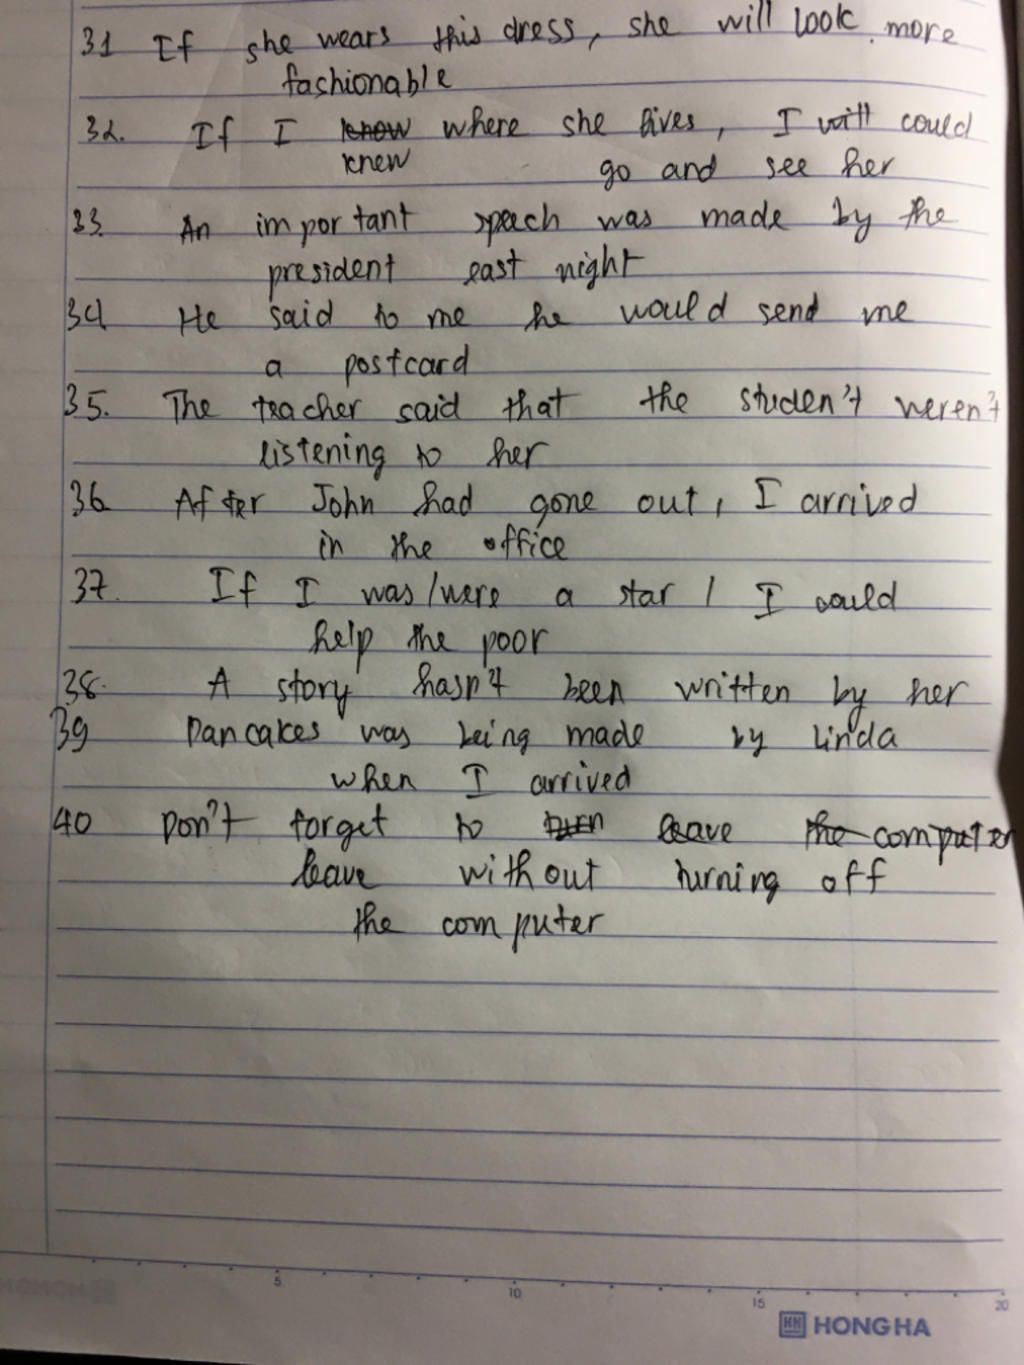 31 If she wears this dress, she will look more
fashionable
32. If I know where she lives, I will could
knew go and see her
33. An important speech was made by the
president last night
34 He said to me he would send me
a postcard
35. The teacher said that the studen't weren't
listening to her
36 After John had gone out, I arrived
in the office
37. If I was/were a star / I could
help the poor
38. A story hasn't been written by her
39 Pancakes was being made by Linda
when I arrived
40 Don't forget to turn leave the computer
leave without turning off
the computer
5 10 15 20
HONG HA